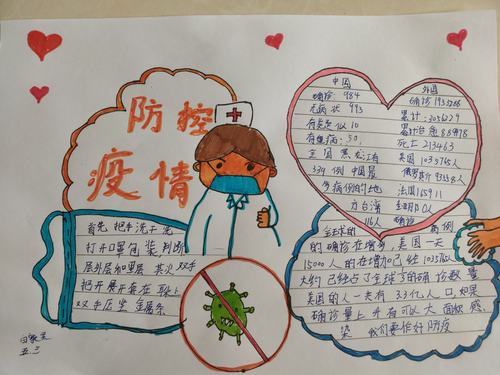 防控
疫情
首先 把手洗干洗
打开口罩包装,判断
层外层和里层 其次 双手
把开展开套在耳上
双手压坐 金属条
五三
中国
确诊: 984
无症状 993
有疑是似 10
有重病: 50,
344例 中国最
多病例的地
方台湾
116人
外国
确诊 1935266
累计: 3056229
死亡 213463
美国 1035765人
俄罗斯 93558人
法国 165911
全球的 病例
的确诊在增多,美国一天
15000人的在增加已经1035765人
大约已经占了全球了的确诊数量
美国的人一共有 3.3亿人口,如果
确诊量上升有可以大面积感
染 我们要作好防疫